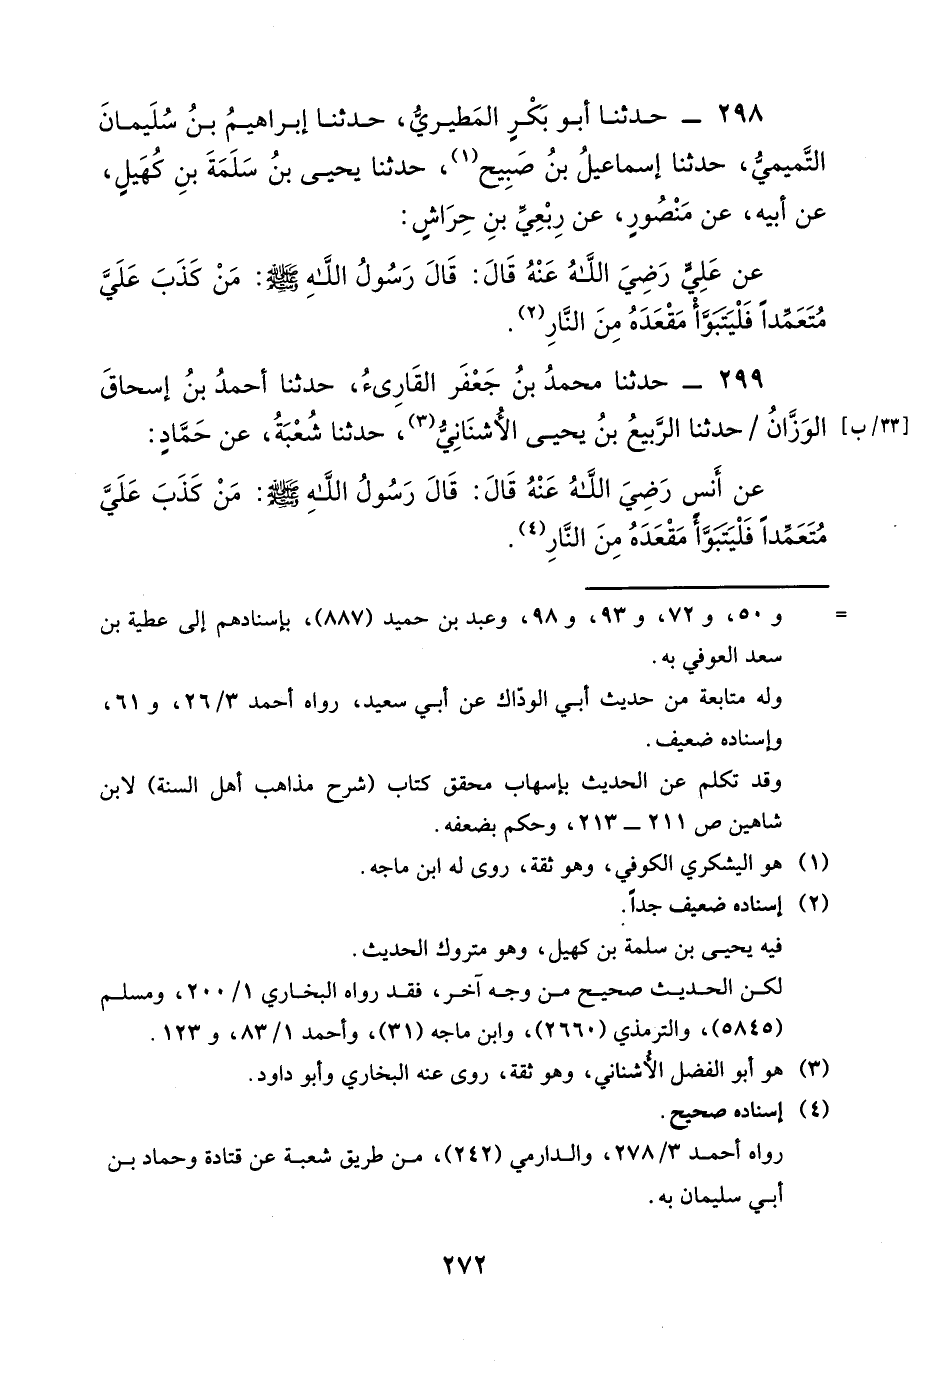 ٢٩٨ ــ حدثنا أبو بَكْرٍ المَطيريُّ، حدثنا إبراهيمُ بنُ سُلَيمانَ
التَّميميُّ، حدثنا إسماعيلُ بنُ صَبِيح(١)، حدثنا يحيى بنُ سَلَمَةَ بنِ كُهَيلٍ،
عن أبيه، عن مَنْصُورٍ، عن رِبْعِيِّ بنِ حِرَاشٍ:
عن عَلِيٍّ رَضِيَ اللَّهُ عَنْهُ قَالَ: قَالَ رَسُولُ اللَّهِ ﷺ: مَنْ كَذَبَ عَلَيَّ
مُتَعَمِّداً فَلْيَتَبَوَّأْ مَقْعَدَهُ مِنَ النَّارِ(٢).
٢٩٩ ــ حدثنا محمدُ بنُ جَعْفَر القَارِىءُ، حدثنا أحمدُ بنُ إسحاقَ
[٣٣/ب] الوَزَّانُ / حدثنا الرَّبيعُ بنُ يحيى الأُشنَانِيُّ(٣)، حدثنا شُعْبَةُ، عن حَمَّادٍ:
عن أَنَسٍ رَضِيَ اللَّهُ عَنْهُ قَالَ: قَالَ رَسُولُ اللَّهِ ﷺ: مَنْ كَذَبَ عَلَيَّ
مُتَعَمِّداً فَلْيَتَبَوَّأْ مَقْعَدَهُ مِنَ النَّارِ(٤).
= و ٥٠، و ٧٢، و ٩٣، و ٩٨، وعبد بن حميد (٨٨٧)، بإسنادهم إلى عطية بن
سعد العوفي به.
وله متابعة من حديث أبي الودّاك عن أبي سعيد، رواه أحمد ٢٦/٣، و ٦١،
وإسناده ضعيف.
وقد تكلم عن الحديث بإسهاب محقق كتاب (شرح مذاهب أهل السنة) لابن
شاهين ص ٢١١ ــ ٢١٣، وحكم بضعفه.
(١) هو اليشكري الكوفي، وهو ثقة، روى له ابن ماجه.
(٢) إسناده ضعيف جداً.
فيه يحيى بن سلمة بن كهيل، وهو متروك الحديث.
لكن الحديث صحيح من وجه آخر، فقد رواه البخاري ٢٠٠/١، ومسلم
(٥٨٤٥)، والترمذي (٢٦٦٠)، وابن ماجه (٣١)، وأحمد ٨٣/١، و ١٢٣.
(٣) هو أبو الفضل الأُشناني، وهو ثقة، روى عنه البخاري وأبو داود.
(٤) إسناده صحيح.
رواه أحمد ٢٧٨/٣، والدارمي (٢٤٢)، من طريق شعبة عن قتادة وحماد بن
أبي سليمان به.
٢٧٢